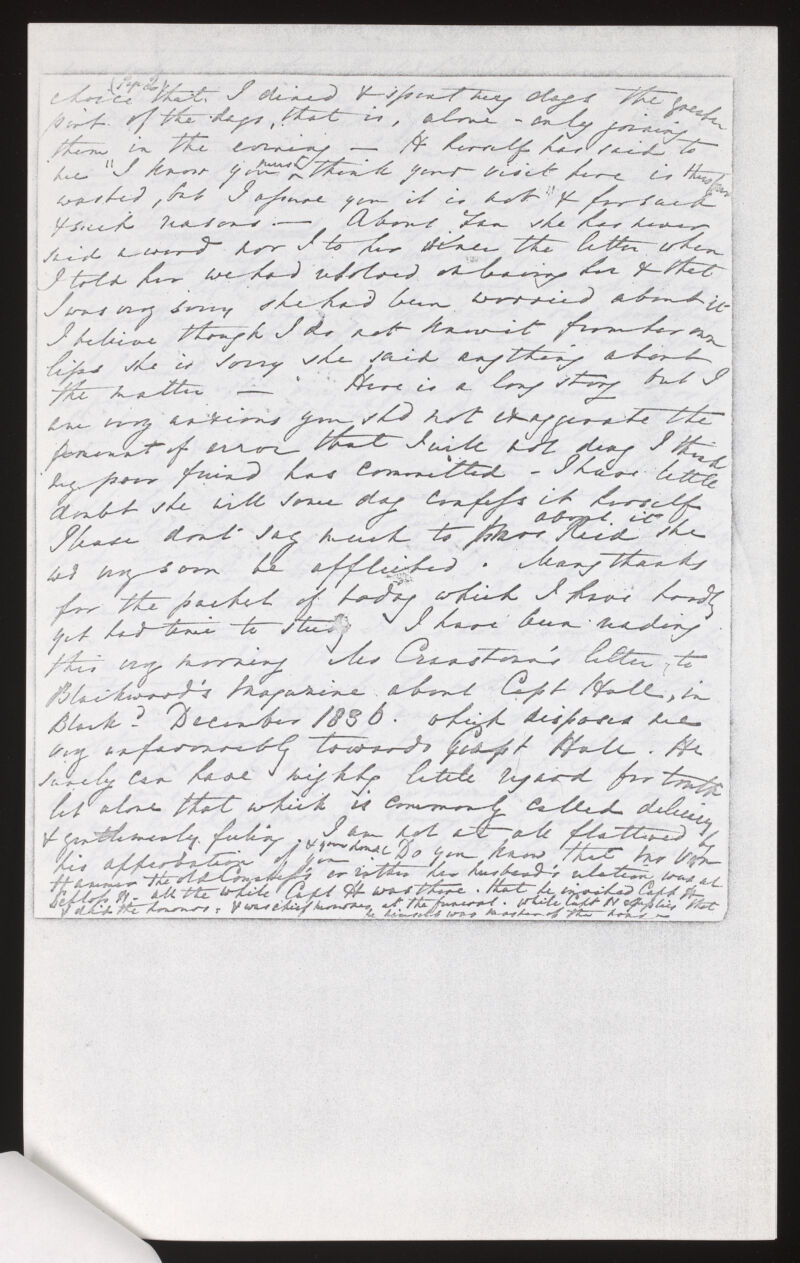 (Pap 2)
choice that I dined & spent my days the greater
part of the days, that is, alone - only joining
them in the evening — H herself has said to
me "I know you must think your visit here is thrown
washed, but I assure you it is not" & for such
& such reasons — About Ian she has never
said a word nor I to her since the letter when
I told her we had resolved on leaving her & that
I was very sorry she had been worried about it
I believe though I do not know it from her own
lips she is sorry she said anything about
the matter — Here is a long story but I
am very anxious you shd not exaggerate the
amount of error that I will not deny I think
my poor friend has committed - I have little
doubt she will some day confess it herself
Please don't say much to Mrs Reid about it she
wd very soon be afflicted. Many thanks
for the packet of today which I have hardly
yet had time to study I have been reading
this very morning Mr Cranstown's letter, to
Blackwood's Magazine about Capt Hall, in
Blackd December 1836. which disposes me
very unfavourably towards Capt Hall. He
surely can have mighty little regard for truth
let alone that which is commonly called delicacy
& gentlemanly feeling. I am not at all flattered by
his approbation of you & your house Do you know that Mrs
the old Countess's or rather her husband's relation was at
all the while Capt H was there. that he invited Capt H
did the honours, & was chief mourner at the funeral. while Capt H implies that
he himself was master of the house —